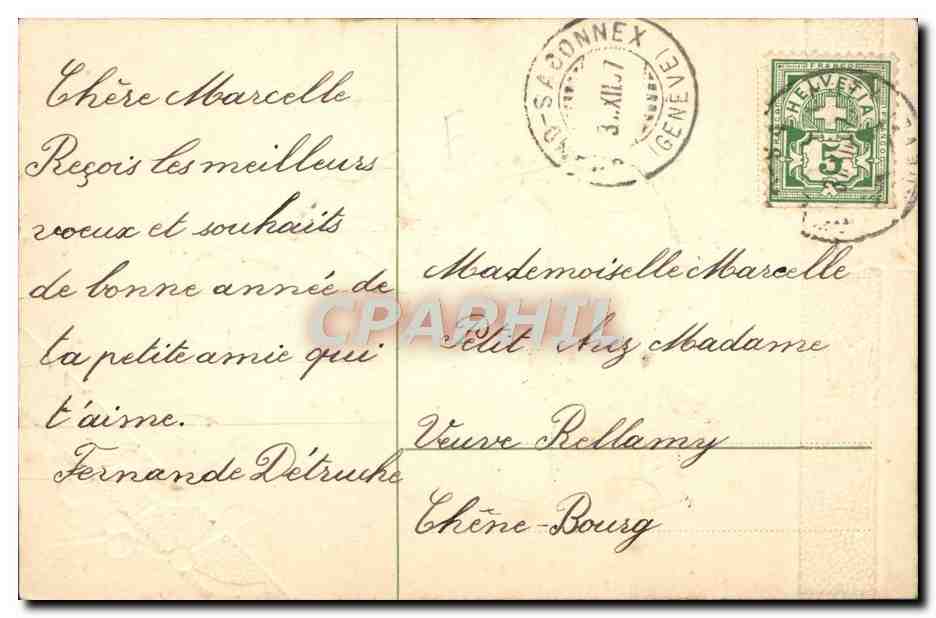 Chère Marcelle
Reçois les meilleurs
voeux et souhaits
de bonne année de
ta petite amie qui
t'aime.
Fernande Détruche
Mademoiselle Marcelle
Petit chez Madame
Veuve Rellamy
Chêne-Bourg
D-SACONNEX (GENÈVE)
XII.07
FRANCO
HELVETIA
5
CPARHIL